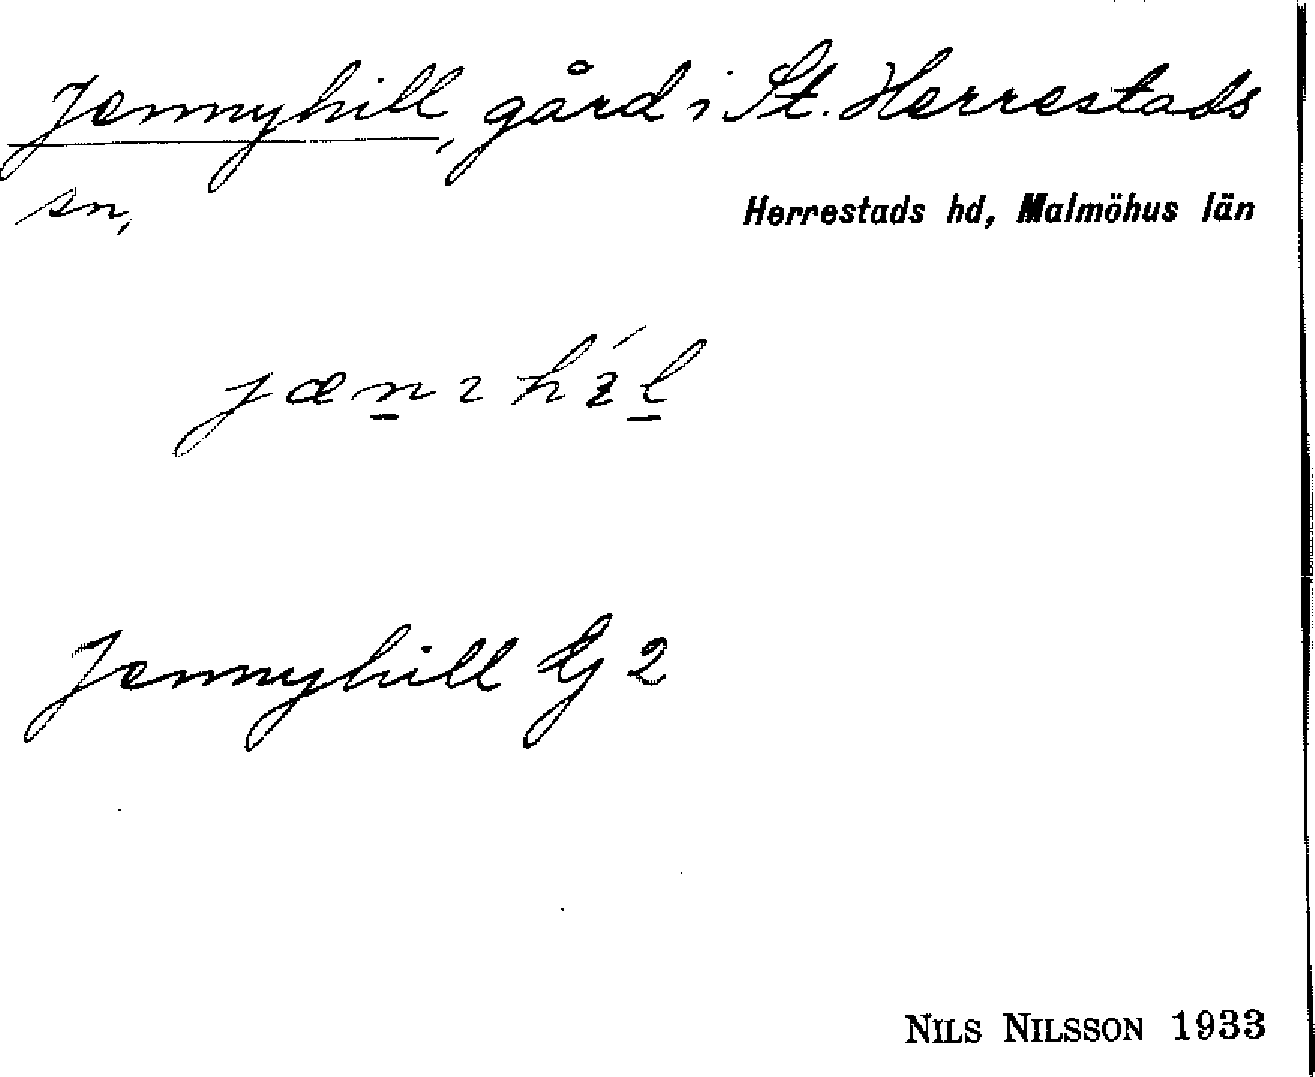 Jennyhill, gård i St. Herrestads
sn,
Herrestads hd, Malmöhus län
Jennyhill Eg 2
NILS NILSSON 1933